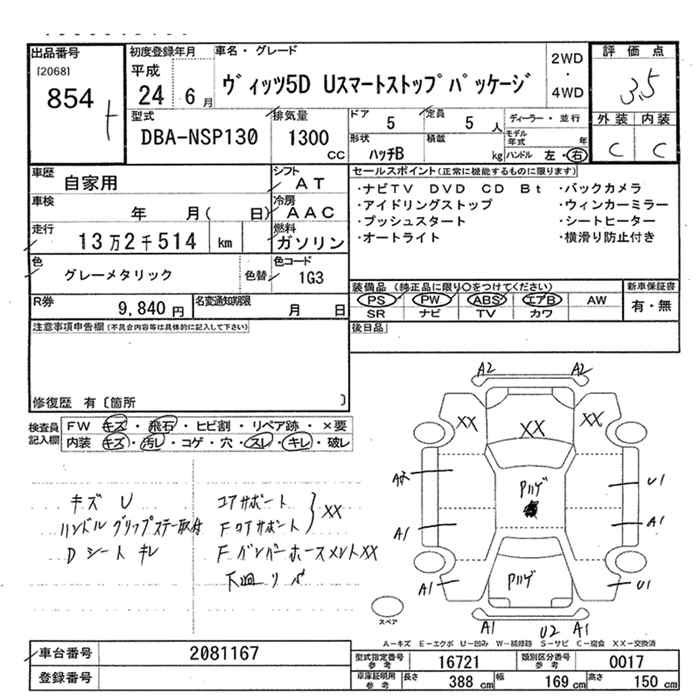 出品番号
[2068]
854
初度登録年月
平成
24 6月
車名・グレード
ヴィッツ5D Uスマートストップパッケージ
2WD
・
4WD
評価点
3.5
外装 内装
C C
型式
DBA-NSP130
排気量
1300
CC
ドア 5
定員 5 人
形状 ハッチB
積載 kg
ディーラー・並行
モデル年式 年
ハンドル 左・右
車歴 自家用
シフト AT
車検 年 月( 日)
冷房 AAC
走行 13万2千514 km
燃料 ガソリン
色 グレーメタリック
色替
色コード 1G3
R券 9,840円
名変通知期限 月 日
セールスポイント(正常に機能するものに限ります)
・ナビTV DVD CD Bt
・バックカメラ
・アイドリングストップ
・ウィンカーミラー
・プッシュスタート
・シートヒーター
・オートライト
・横滑り防止付き
装備品(純正品に限り○をつけてください)
新車保証書
PS PW ABS エアB AW
SR ナビ TV カワ
有・無
後日品
注意事項申告欄(不具合内容等は具体的に記入して下さい)
修復歴 有〔箇所 〕
検査員記入欄
FW キズ・飛石・ヒビ割・リペア跡・×要
内装 キズ・汚レ・コゲ・穴・スレ・キレ・破レ
キズ U
ハンドル グリップステー取付
Dシート キレ
コアサポート
FロアサポートXX
Fバンパーホースメント XX
下廻り サビ
A2 A2
XX XX XX
A2 Pハゲ U1
A1 A1
A1 Pハゲ U1
A1 U2 A1
スペア
A-キズ E-エクボ U-凹み W-補修跡 S-サビ C-腐食 XX-交換済
車台番号 2081167
登録番号
型式指定番号参考 16721
類別区分番号参考 0017
車庫証明用参考 長さ 388 cm 幅 169 cm 高さ 150 cm